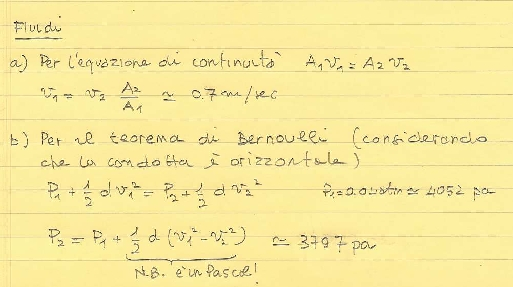 Fluidi
a) Per l'equazione di continuità A₁v₁ = A₂v₂
v₁ = v₂ A₂/A₁ ≃ 0.7 m/sec
b) Per il teorema di Bernoulli (considerando
che la condotta è orizzontale)
P₁ + 1/2 d v₁² = P₂ + 1/2 d v₂² P₁ = 0.04 atm ≃ 4052 pa
P₂ = P₁ + 1/2 d (v₁² - v₂²) ≃ 3797 pa
N.B. è in Pascal!